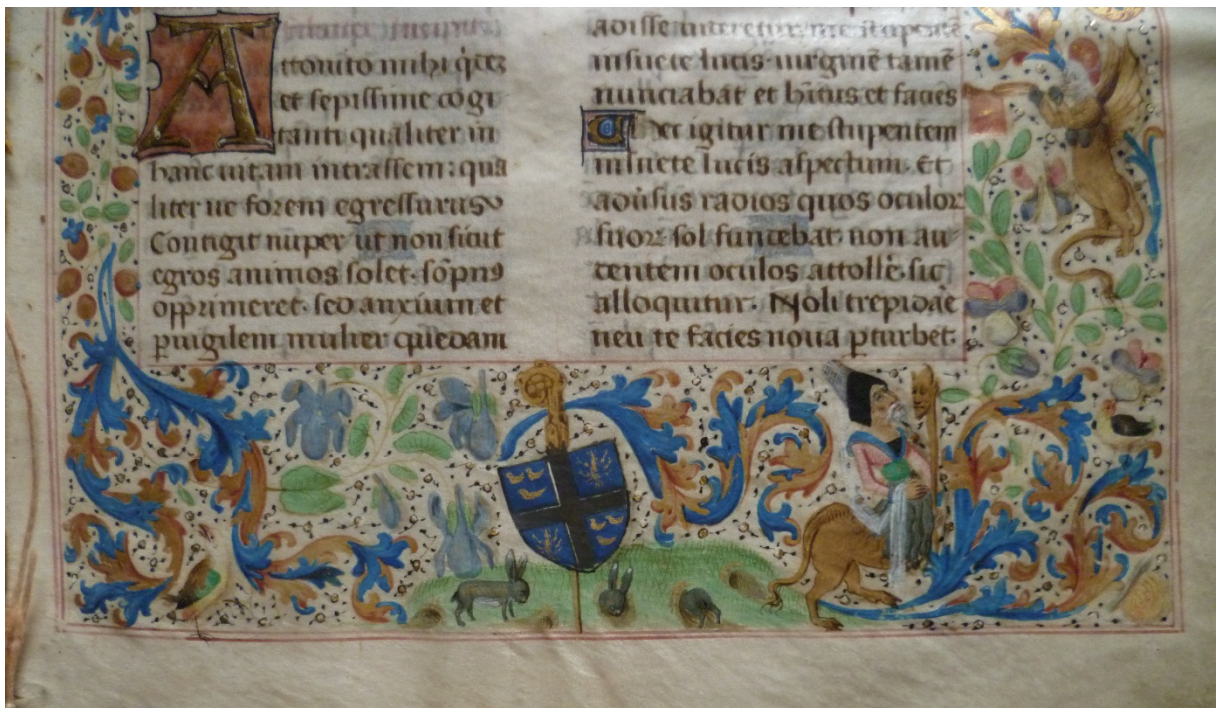 Attonito mihi q̇dē
et sepissime cogi
tanti qualiter in
hanc uitam intrassem: qua
liter ue forem egressurus
Contigit nuper ut non sicut
egros animos solet. sōpnꝰ
opprimeret. sed anxium et
ꝑuigilem mulier quedam
insuete lucis. uirginē tamē
nunciabāt et hītus et facies
igitur me stupentem
insuete lucis aspectum. Et
aduersus radios quos oculor
suoꝝ sol fundebat non au
dentem oculos attollē. sic
alloquitur. Noli trepidaē
neu te facies noua ꝑturbet.